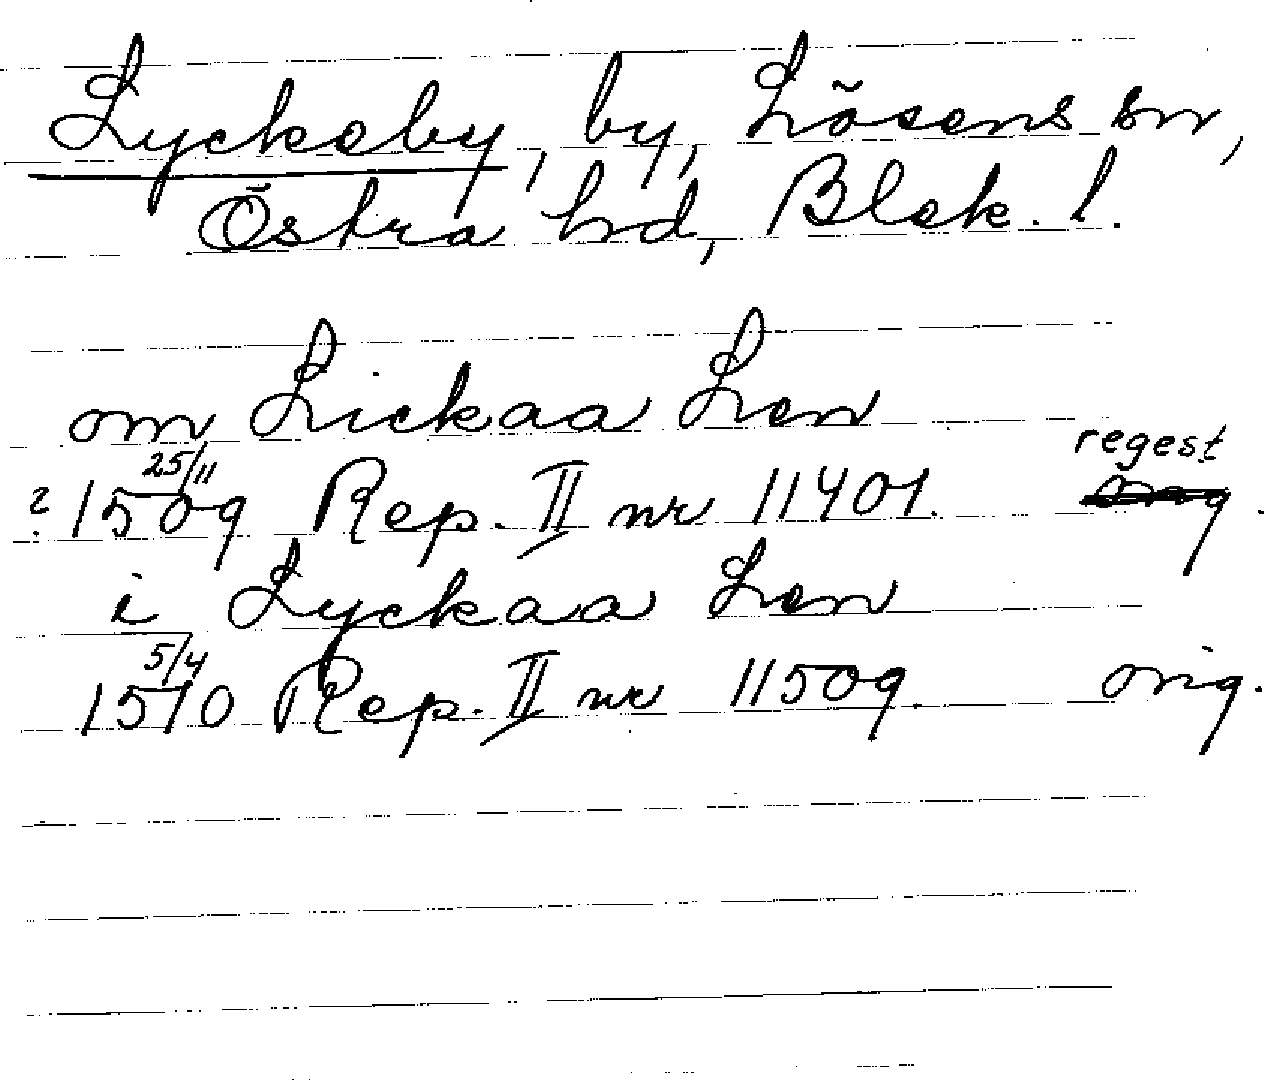 Lyckeby, by, Lösens sn,
Östra hd, Blek. l.
om Lickaa Len
? 25/11 1509 Rep. II nr 11401. regest
i Lyckaa Len
5/4 1510 Rep. II nr 11509. orig.